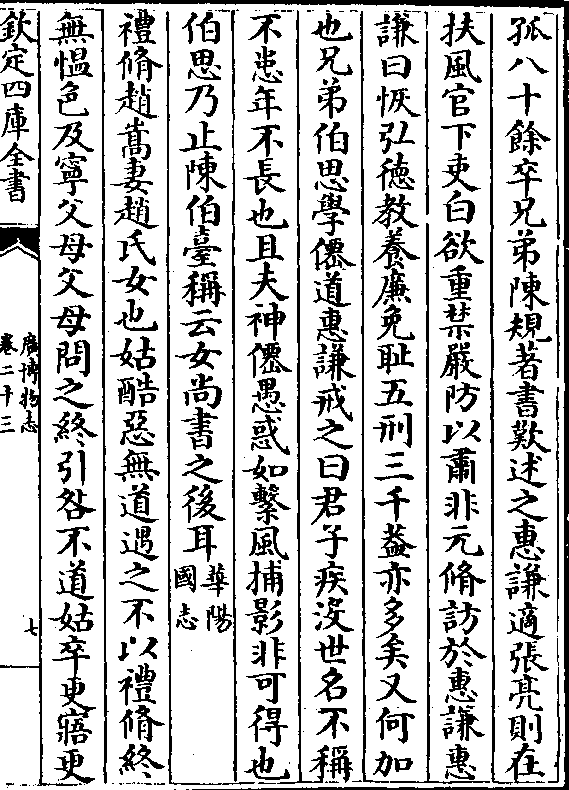 孤八十餘卒兄弟陳規著書歎述之惠謙適張亮則在
扶風官下吏白欲重禁嚴防以肅非元脩訪於惠謙惠
謙曰恢弘德教養廉免恥五刑三千蓋亦多矣又何加
也兄弟伯思學僊道惠謙戒之曰君子疾沒世名不稱
不患年不長也且夫神僊愚惑如繫風捕影非可得也
伯思乃止陳伯臺稱云女尚書之後耳華陽國志
禮脩趙嵩妻趙氏女也姑酷惡無道遇之不以禮脩終
無慍色及寧父母父母問之終引咎不道姑卒更寤更
欽定四庫全書
廣博物志
卷二十三
七